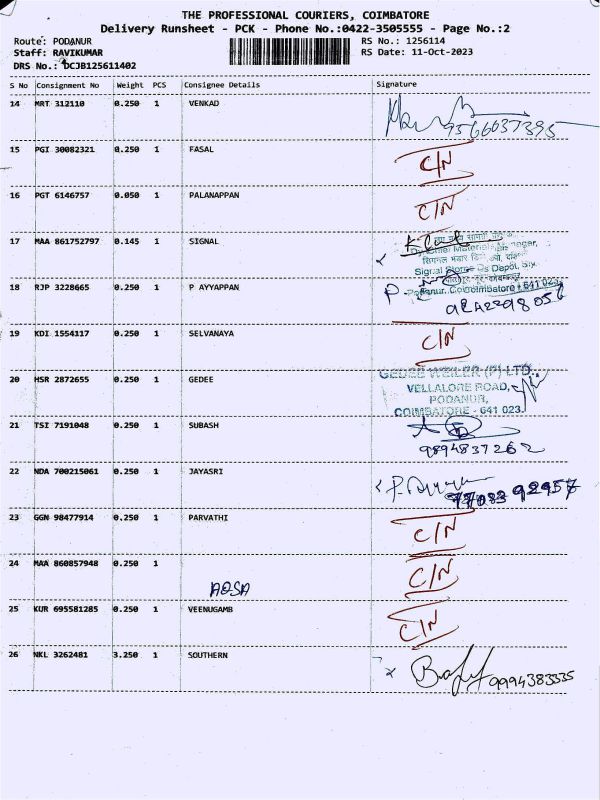 THE PROFESSIONAL COURIERS, COIMBATORE
Delivery Runsheet - PCK - Phone No.:0422-3505555 - Page No.:2
Route: PODANUR RS No.: 1256114
Staff: RAVIKUMAR RS Date: 11-Oct-2023
DRS No.: DCJB125611402
S No Consignment No Weight PCS Consignee Details Signature
14 MRT 312110 0.250 1 VENKAD 9566037395
15 PGI 30082321 0.250 1 FASAL C/N
16 PGT 6146757 0.050 1 PALANAPPAN C/N
17 MAA 861752797 0.145 1 SIGNAL
Signal Stores Depot,
Podanur, Coimbatore - 641 023
18 RJP 3228665 0.250 1 P AYYAPPAN
19 KDI 1554117 0.250 1 SELVANAYA C/N
20 HSR 2872655 0.250 1 GEDEE
GEDEE WEILER (P) LTD.,
VELLALORE ROAD,
PODANUR,
COIMBATORE - 641 023.
21 TSI 7191048 0.250 1 SUBASH
9894837262
22 NDA 700215061 0.250 1 JAYASRI
92957
23 GGN 98477914 0.250 1 PARVATHI C/N
24 MAA 860857948 0.250 1 C/N
AOSA
25 KUR 695581285 0.250 1 VEENUGAMB C/N
26 NKL 3262481 3.250 1 SOUTHERN
9994383335